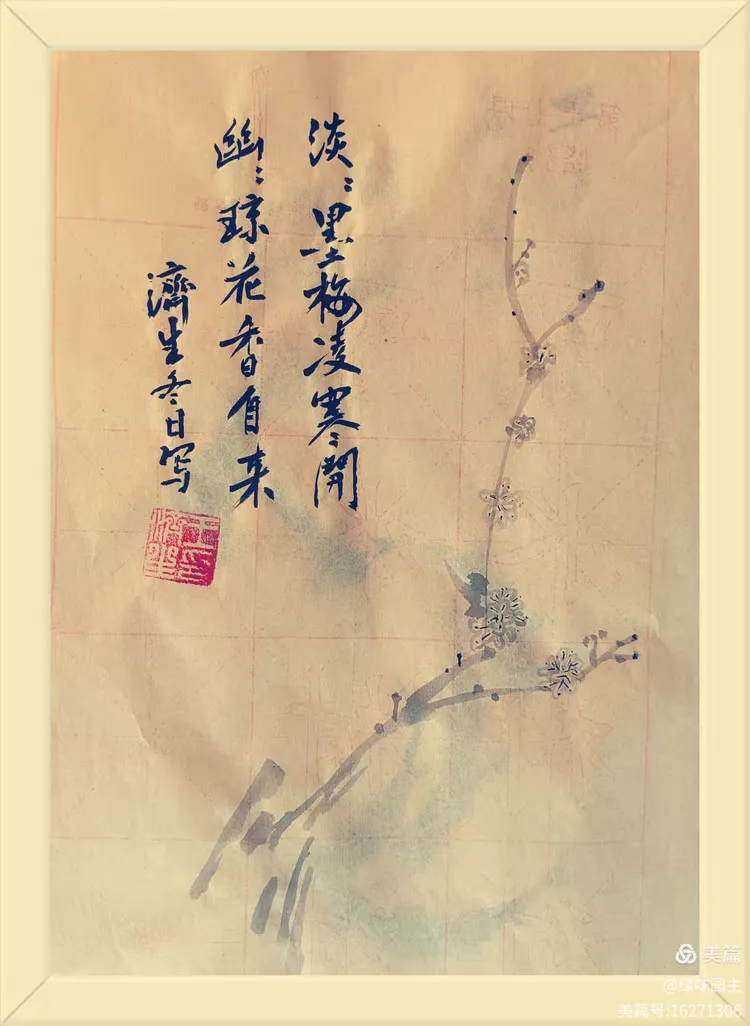 淡〻墨梅凌寒開
幽〻琼花香自来
濟生冬日写
美篇
@绿味园主
美篇号:16271306